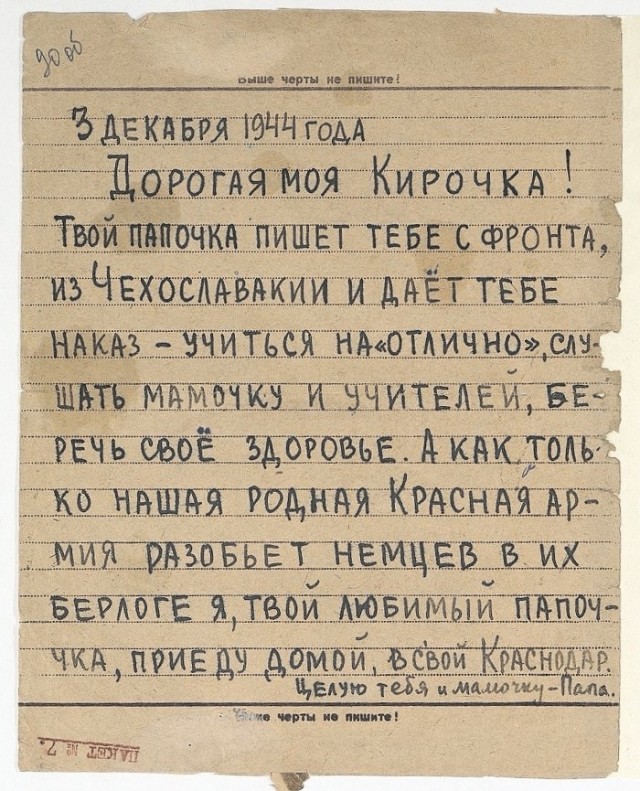 9006
Выше черты не пишите!
3 ДЕКАБРЯ 1944 ГОДА
ДОРОГАЯ МОЯ КИРОЧКА!
ТВОЙ ПАПОЧКА ПИШЕТ ТЕБЕ С ФРОНТА,
ИЗ ЧЕХОСЛАВАКИИ И ДАЁТ ТЕБЕ
НАКАЗ – УЧИТЬСЯ НА «ОТЛИЧНО», СЛУ-
ШАТЬ МАМОЧКУ И УЧИТЕЛЕЙ, БЕ-
РЕЧЬ СВОЁ ЗДОРОВЬЕ. А КАК ТОЛЬ-
КО НАШАЯ РОДНАЯ КРАСНАЯ АР-
МИЯ РАЗОБЬЕТ НЕМЦЕВ В ИХ
БЕРЛОГЕ Я, ТВОЙ ЛЮБИМЫЙ ПАПОЧ-
ЧКА, ПРИЕДУ ДОМОЙ, В СВОЙ КРАСНОДАР.
ЦЕЛУЮ тебя и мамочку – Папа.
Ниже черты не пишите!
ПАКЕТ № 7.